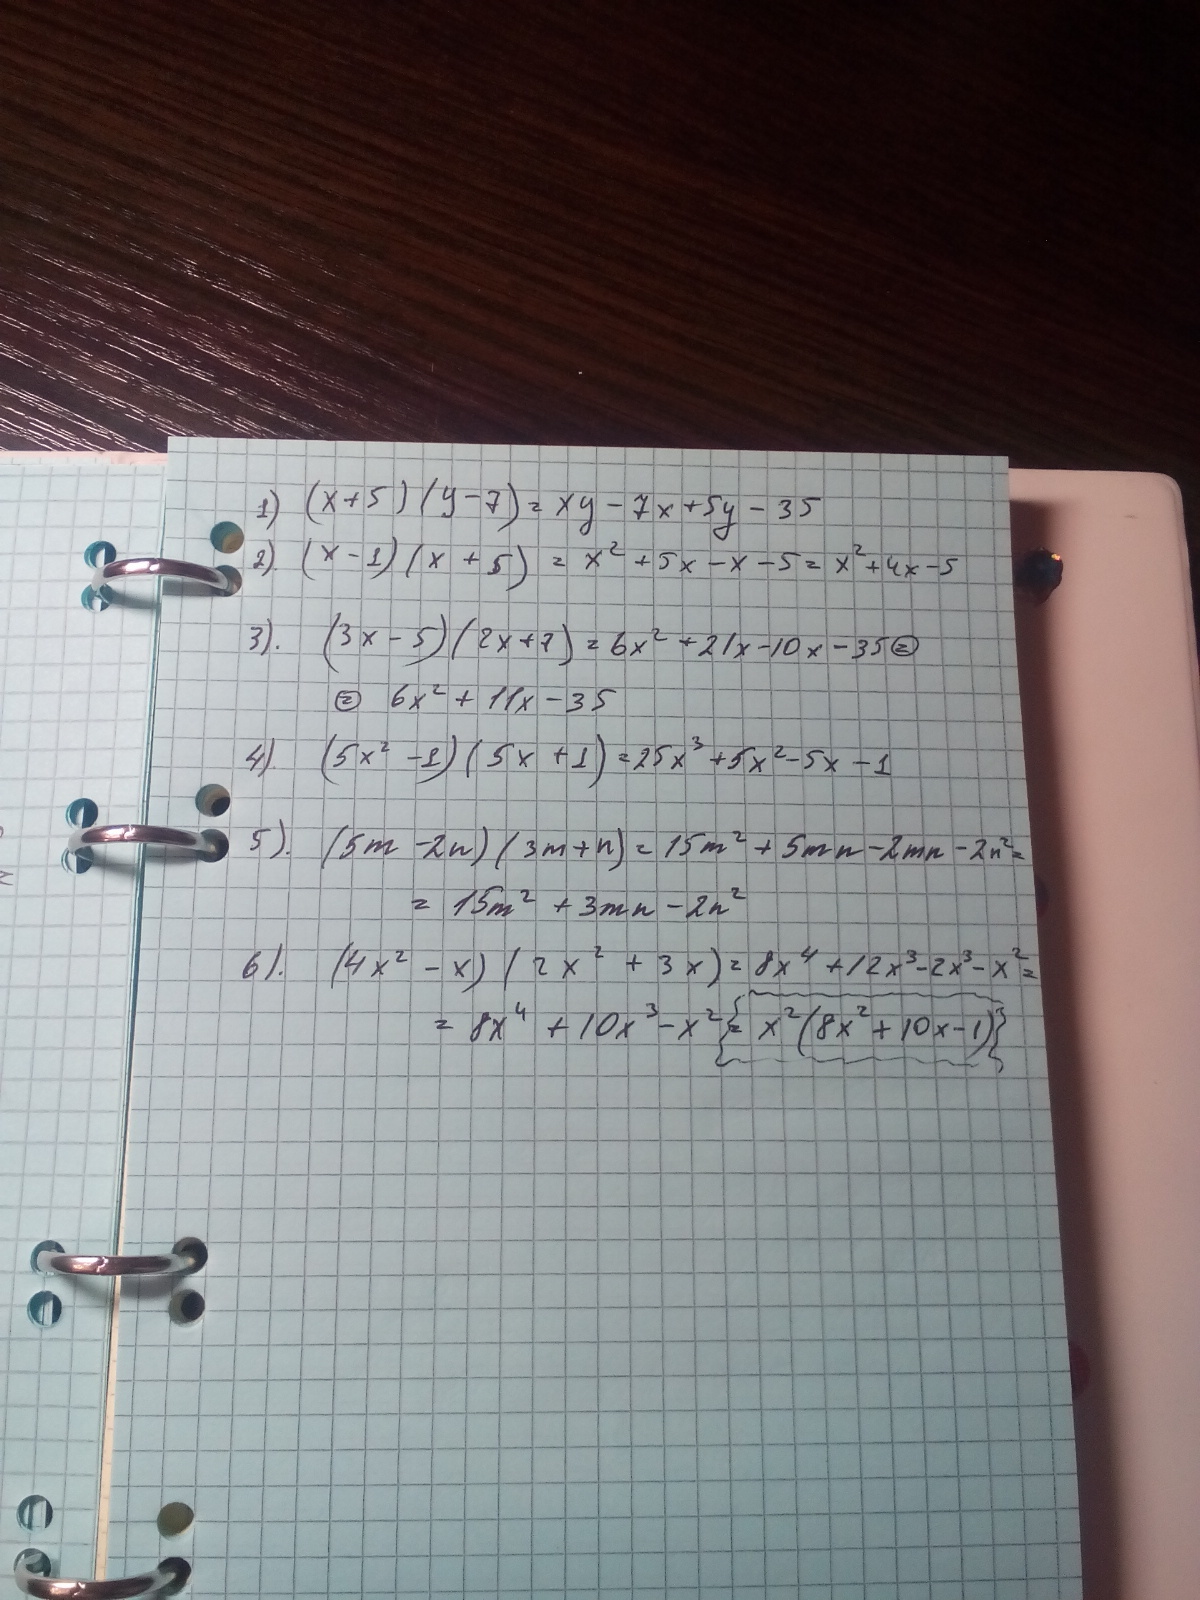 1) (x+5)(y-7)= xy-7x+5y-35
2) (x-1)(x+5) = x²+5x-x-5= x²+4x-5
3). (3x-5)(2x+7)=6x²+21x-10x-35⊜
⊜ 6x²+11x-35
4) (5x²-1)(5x+1)=25x³+5x²-5x-1
5). (5m-2n)(3m+n)=15m²+5mn-2mn-2n²=
= 15m²+3mn-2n²
6). (4x²-x)(2x²+3x)=8x⁴+12x³-2x³-x²=
= 8x⁴+10x³-x²{= x²(8x²+10x-1)}